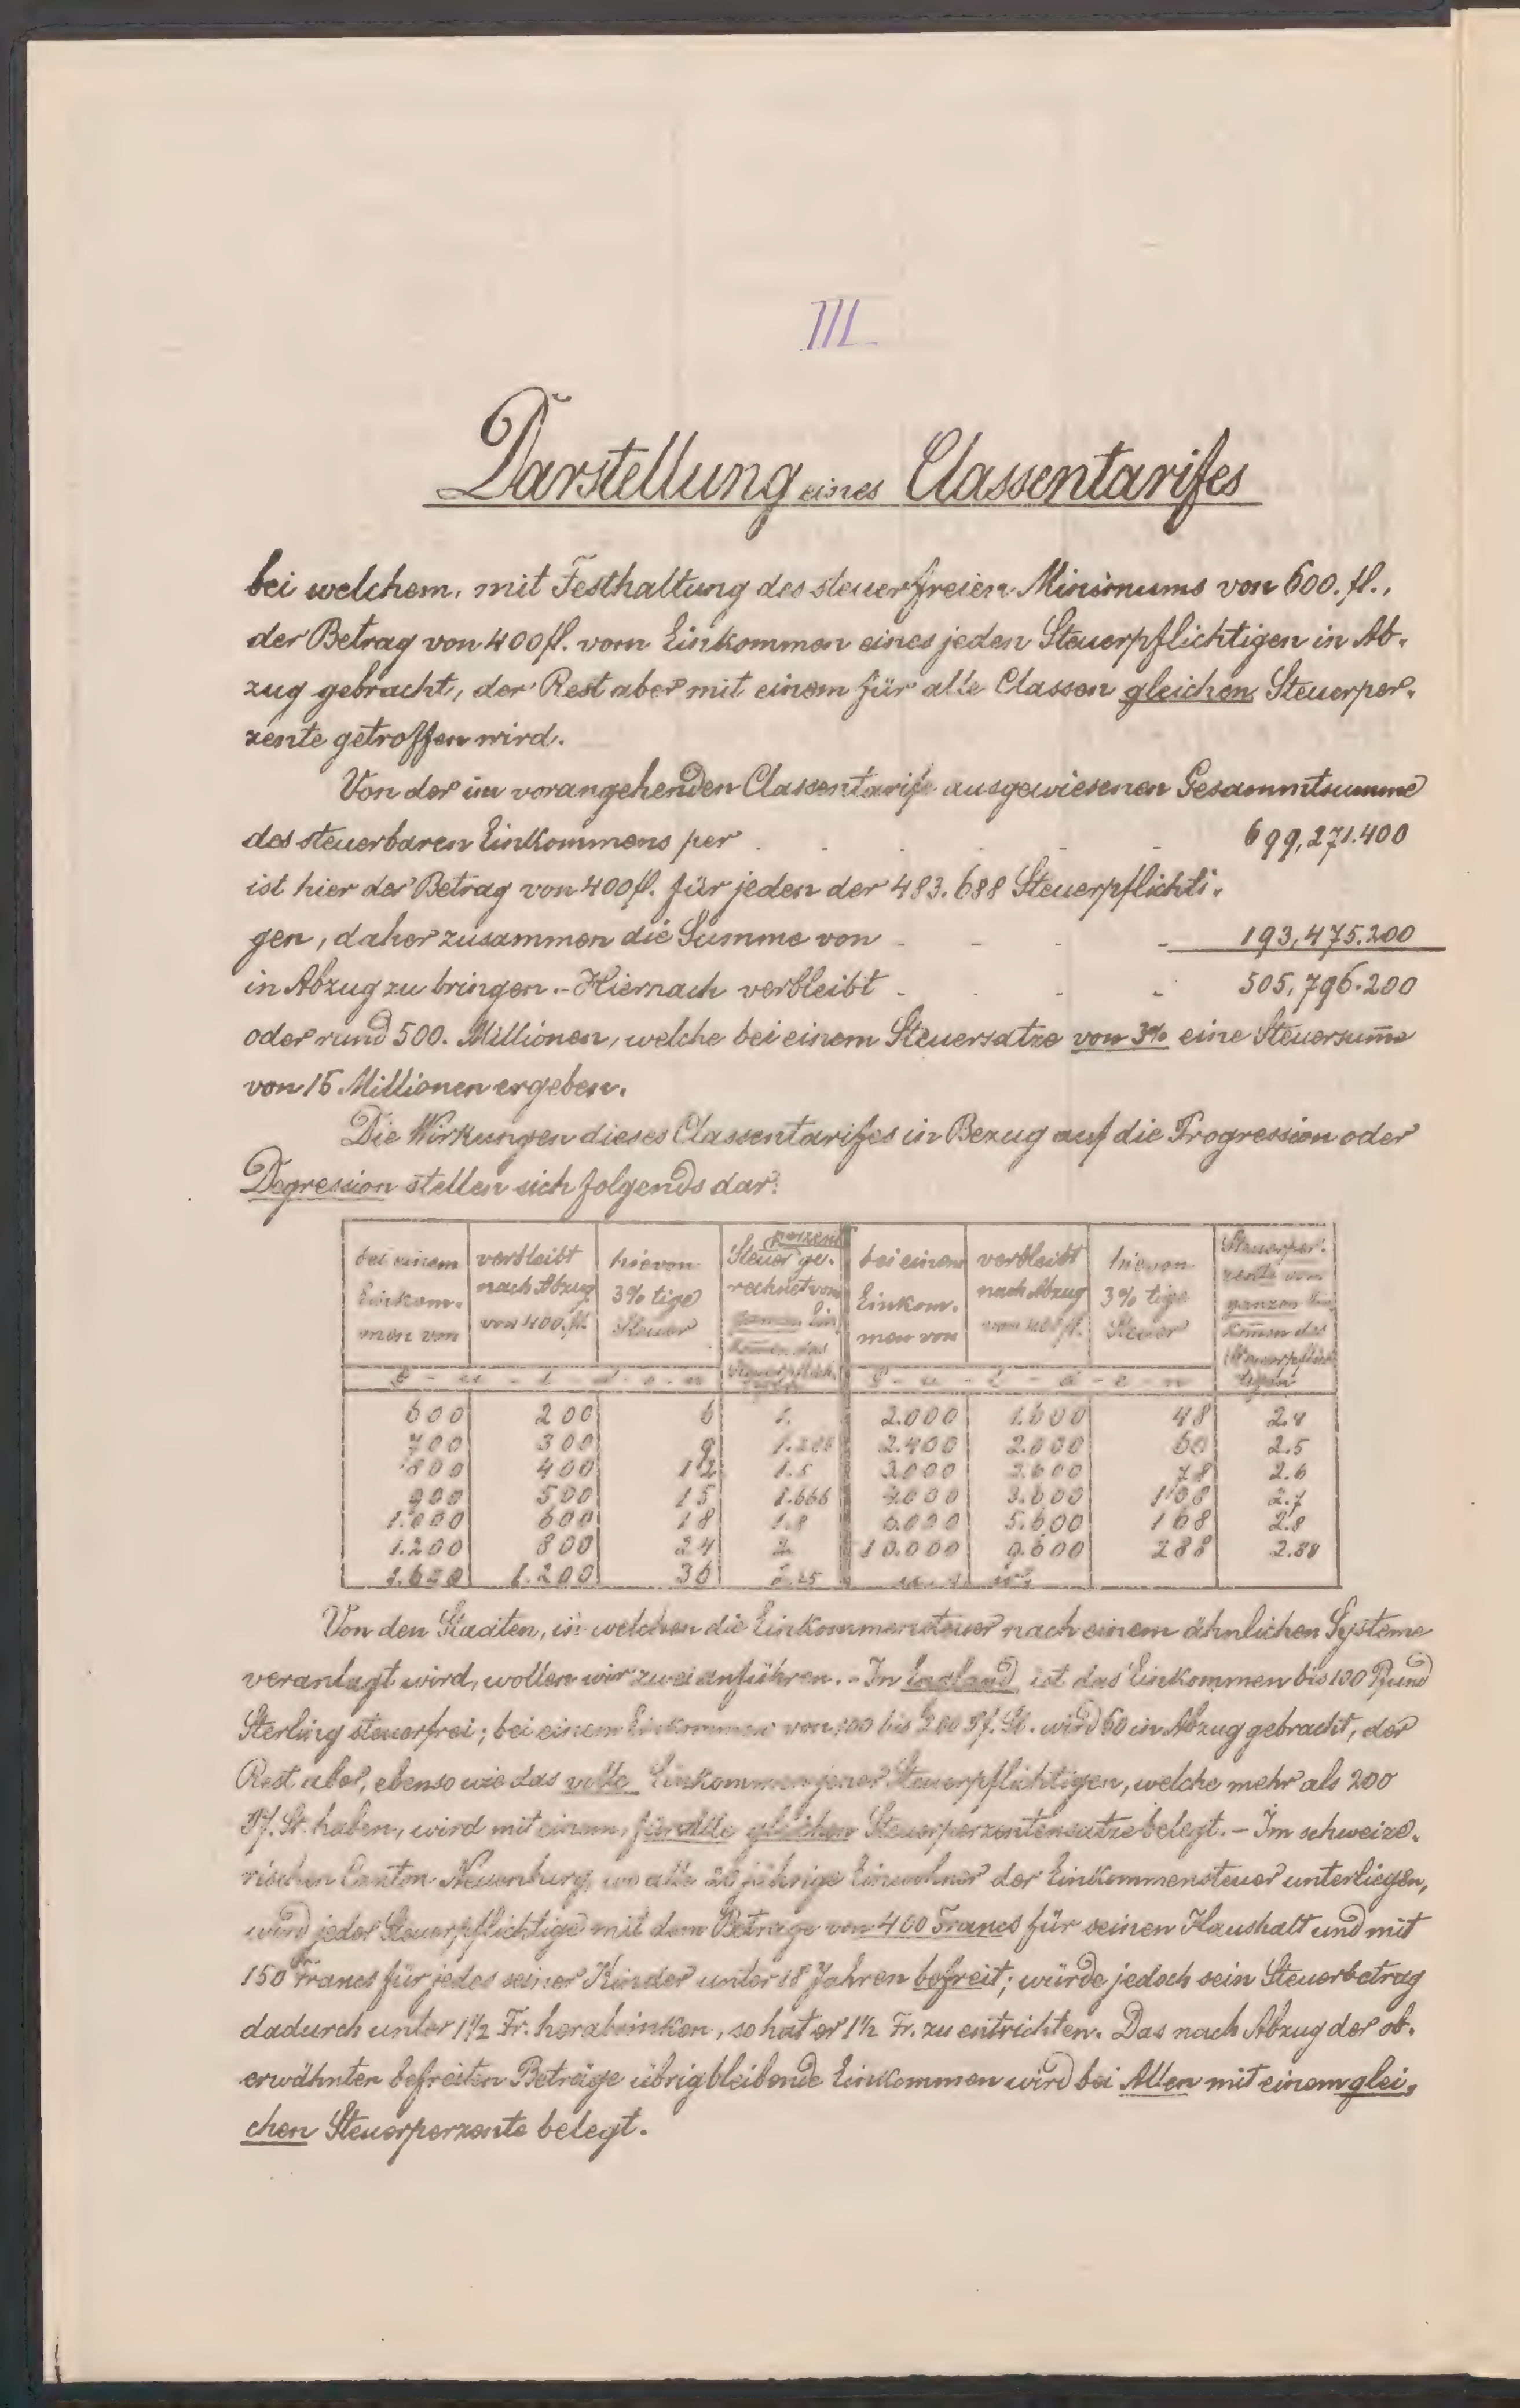 III
Darstellung eines Classentarifes
bei welchem, mit Festhaltung des steuerfreien Minimums von 600. fl.,
der Betrag von 400 fl. vom Einkommen eines jeden Steuerpflichtigen in Ab-
zug gebracht, der Rest aber mit einem für alle Classen gleichen Steuerper-
zente getroffen wird.
Von der im vorangehenden Classentarife ausgewiesenen Gesammtsumme
des steuerbaren Einkommens per . . . . 699,271.400
ist hier der Betrag von 400 fl. für jeden der 483.688 Steuerpflichti-
gen, daher zusammen die Summe von - - - - 193,475.200
in Abzug zu bringen. - Hiernach verbleibt - - - - 505,796.200
oder rund 500. Millionen, welche bei einem Steuersatze von 3% eine Steuersum̄e
von 15 Millionen ergeben.
Die Wirkungen dieses Classentarifes in Bezug auf die Progression oder
Degression stellen sich folgends dar:
bei einem Einkom-men von | verbleibt nach Abzug von 400. fl. | hievon 3% tige Steuer | Steuerperzent gerechnet vom ganzen Ein-kom̄en des Steuerpflich-tigen | bei einem Einkom-men von | verbleibt nach Abzug von 400 fl. | hievon 3% tige Steuer | Steuerper-zente vom ganzen Ein-kom̄en des Steuerpflich-tigen
G - u - l - d - e - n | G - u - l - d - e - n
600 200 6 1. 2.000 1.600 48 2.4
700 300 9 1.285 2.400 2.000 60 2.5
800 400 12 1.5 3.000 2.600 78 2.6
900 500 15 1.666 4.000 3.600 108 2.7
1.000 600 18 1.8 6.000 5.600 168 2.8
1.200 800 24 2. 10.000 9.600 288 2.88
1.600 1.200 36 2.25 u. s. w.
Von den Staaten, in welchen die Einkommensteuer nach einem ähnlichen Systeme
veranlagt wird, wollen wir zwei anführen. - In England ist das Einkommen bis 100 Pfund
Sterling steuerfrei; bei einem Einkommen von 100 bis 200 Pf. St. wird 60 in Abzug gebracht, der
Rest aber, ebenso wie das volle Einkommen jener Steuerpflichtigen, welche mehr als 200
Pf. St. haben, wird mit einem, für alle gleichen Steuerperzentensatze belegt. - Im schweize-
rischen Canton Neuenburg, wo alle 20 jährige Einwohner der Einkommensteuer unterliegen,
wird jeder Steuerpflichtige mit dem Betrage von 400 Francs für seinen Haushalt und mit
150 Francs für jedes seiner Kinder unter 18 Jahren befreit; würde jedoch sein Steuerbetrag
dadurch unter 1½ Fr. herabsinken, so hat er 1½ Fr. zu entrichten. Das nach Abzug der ob-
erwähnten befreiten Beträge übrigbleibende Einkommen wird bei Allen mit einem glei-
chen Steuerperzente belegt.